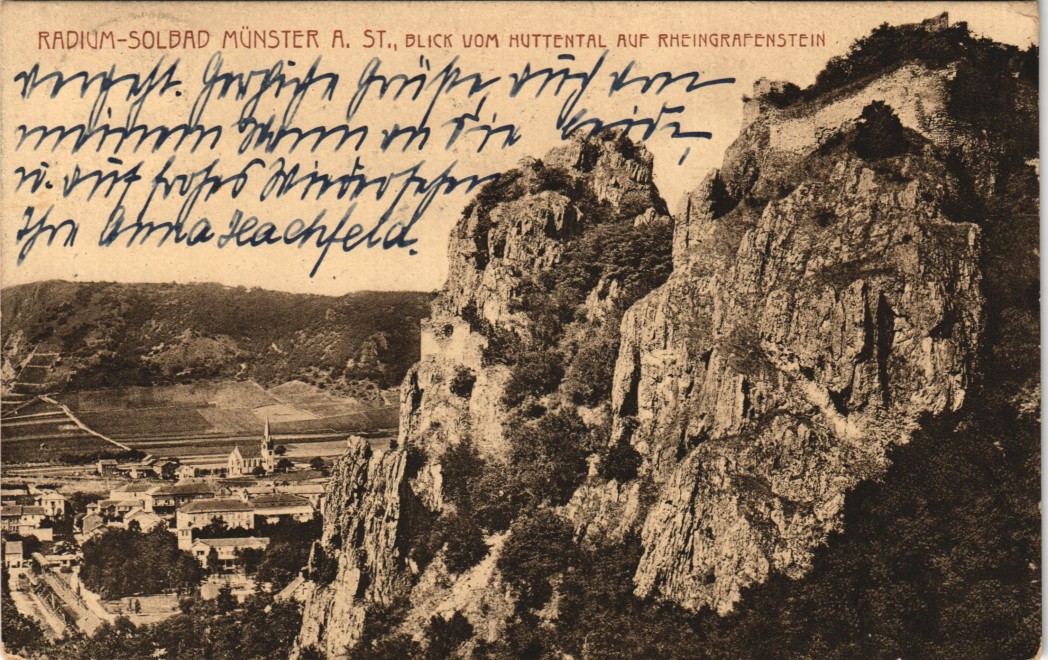 RADIUM-SOLBAD MÜNSTER A. ST., BLICK VOM HUTTENTAL AUF RHEINGRAFENSTEIN
vergeht. Herzliche Grüße auch von
meinem Mann an Sie beide,
u. auf frohes Wiedersehen
Ihre Anna Hachfeld.